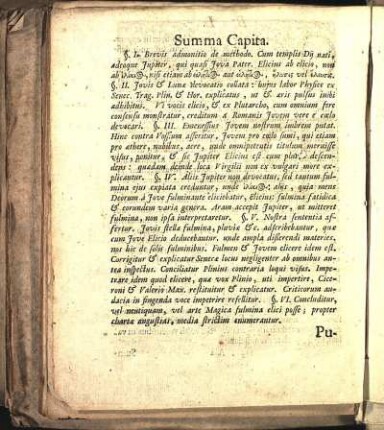 Summa Capita.
§. I. Brevis admonitio de methodo. Cum templis Dij nati,
adeoque Jupiter, qui quasi Jova Pater. Elicius ab elicio, non
ab nisi etiam ab aut vel
§. II. Jovis & Lunæ devocatio collata: hujus labor Physice ex
Senec. Trag. Plin. & Hor. explicatus, ut & æris pulsus inibi
adhibitus. Vi vocis elicio, & ex Plutarcho, cum omnium fere
consensu monstratur, creditum a Romanis Jovem vere e cœlo
devocari. §. III. Emœnssius Jovem nostrum imbrem putat.
Hinc contra Vossium asseritur, Jovem pro cœlo sumi, qui etiam
pro æthere, nubibus, aere, unde omnipotentis titulum meruisse
visus, ponitur, & sic Jupiter Elicius est cum pluvia descen-
dens: quædam deinde loca Virgilii non ex vulgari more ex-
plicantur. §. IV. Aliis Jupiter non devocatus, sed tantum ful-
mina ejus expiata creduntur, unde aliis, quia mens
Deorum a Jove fulminante eliciebatur, elicius: fulmina fatidica
& eorundem varia genera. Aram accepit Jupiter, ut mitteret
fulmina, non ipsa interpretaretur. §. V. Nostra sententia af-
fertur. Jovis stella fulmina, pluvia & c. adscribebantur, quæ
cum Jove Elicio deducebantur. unde ampla disserendi materies.
nos hic de solis fulminibus. Fulmen & Jovem elicere idem est.
Corrigitur & explicatur Senecæ locus negligenter ab omnibus an-
tea inspectus. Conciliatur Plinius contraria loqui visus. Impe-
trare idem quod elicere, qua vox Plinio, uti impetrire, Cice-
roni & Valerio Max. restituitur & explicatur. Criticorum au-
dacia in fingenda voce impetrire refellitur. §. VI. Concluditur,
vel neutiquam, vel arte Magica fulmina elici posse; propter
chartæ angustias, media strictim enumerantur.
Pu-